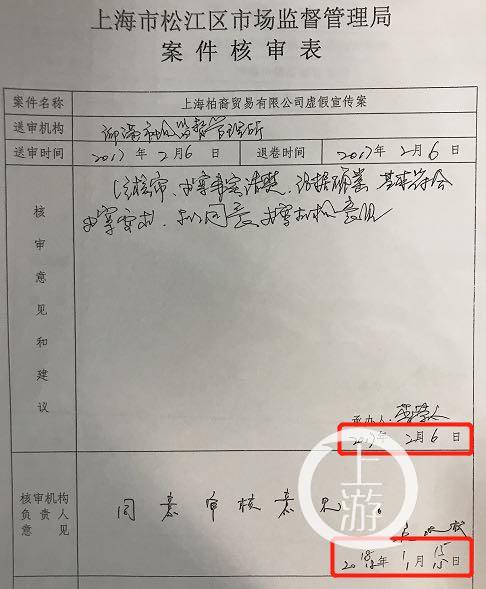 上海市松江区市场监督管理局
案件核审表
案件名称 上海柏裔贸易有限公司虚假宣传案
送审机构 市场监督管理所
送审时间 2017年2月6日 退卷时间 2017年2月6日
核审意见和建议
经核审,办案事实清楚,证据确凿 基本符合
办案 意见
承办人:
2017年 2月 6日
核审机构负责人意见
同意审核意见。
2018年 1月 15日
上游